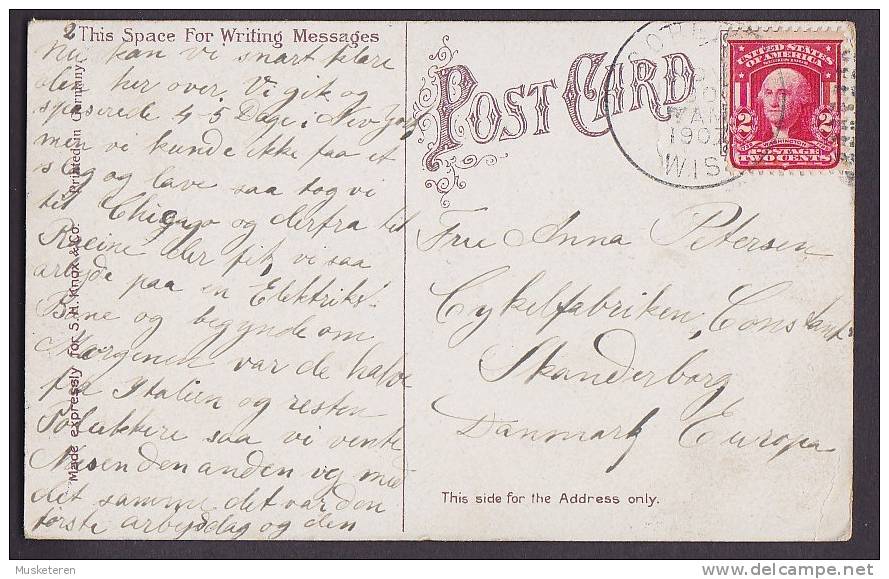 2
This Space For Writing Messages
Nu kan vi snart klare
os her over. Vi gik og
spaserede 4-5 Dage i New York
men vi kunde ikke faa et
Slag og lave saa tog vi
til Chicago og derfra til
Racine der fik vi saa
arbejde paa en Elektrisk
Bane og begynde om
Morgenen var de halve
fra Italien og resten
Polakkere saa vi vente
Næsen den anden vej med
det samme det var den
første arbejdsdag og den
Made expressly for S. H. Knox & Co. Printed in Germany.
POST CARD
AM
190
WIS
UNITED STATES
OF AMERICA
2 2
WASHINGTON
POSTAGE
TWO CENTS
Frue Anna Petersen
Cykelfabriken, Constant
Skanderborg
Danmark Europa
This side for the Address only.
Musketeren
delcampe.net